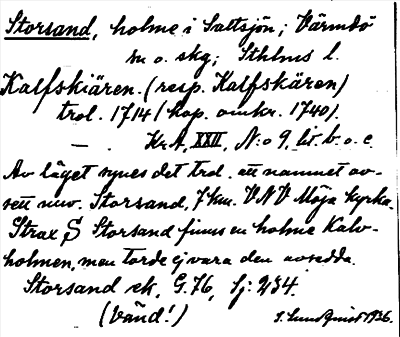 Storsand, holme i Saltsjön; Värmdö
sn o. skg; Sthlms l.
Kalfskiären. (resp. Kalfskären)
trol. 1714 (kop. omkr. 1740).
— . KrA, XXII, N:o 9, lit. b. o. c
Av läget synes det trol. att namnet av-
sett nuv. Storsand, 7 km. VNV Möja kyrka.
Strax S Storsand finns en holme Kalv-
holmen, men torde ej vara den avsedda.
Storsand ek. G. 76, Sj: 234.
(Vänd!) S. Lundquist 1936.